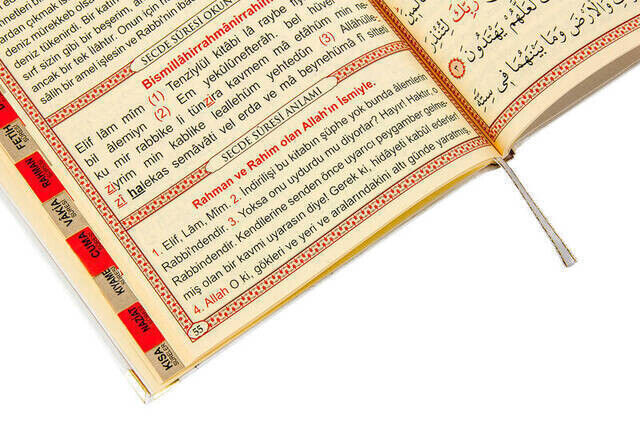 deniz mürekkep olsa
deniz tükenirdi. Bir katı
sırf sizin gibi bir beşerim, an
ancak bir tek ilâhtır. Onun için h
sâlih bir amel işlesin ve Rabbi'nin ibad
SECDE SÛRESİ OKUN
Bismillâhirrahmânirrahîm
Elif lâm mîm (1) Tenzîyül kitâbi lâ raybe
bil âlemiyn (2) Em yekûlûnefterâh. bel hü
ku mir rabbike li tünzira kavmem mâ etâhüm min ne
ziyrim min kablike leallehüm yehtedûn (3) Allâhülle-
zî halekas semâvâti vel erda ve mâ beynehümâ fî sitteti
SECDE SÛRESİ ANLAMI
Rahman ve Rahim olan Allah'ın İsmiyle.
1. Elif, Lâm, Mîm. 2. İndirilişi bu kitabın şüphe yok bunda âlemlerin
Rabbi'ndendir. 3. Yoksa onu uydurdu mu diyorlar? Hayır! Haktır, o
Rabbindendir. Kendilerine senden önce uyarıcı peygamber gelme-
miş olan bir kavmi uyarasın diye! Gerek ki, hidâyeti kabûl ederler!
4. Allah O ki, gökleri ve yeri ve aralarındakini altı günde yaratmış,
55
FETİH
RAHMAN
VÂKIA
CUMA
KIYAME
NAZİAT
KISA
SURELER
رَبِّكَ لِتُنْذِرَ
لَعَلَّهُمْ يَهْتَدُونَ
وَالْاَرْضَ وَمَا بَيْنَهُمَا فِى سِتَّةِ